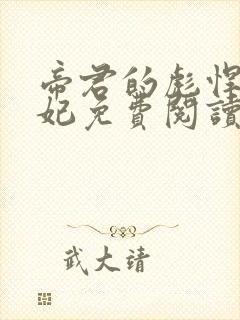 帝君的彪悍
妃免費閱讀
武大靖